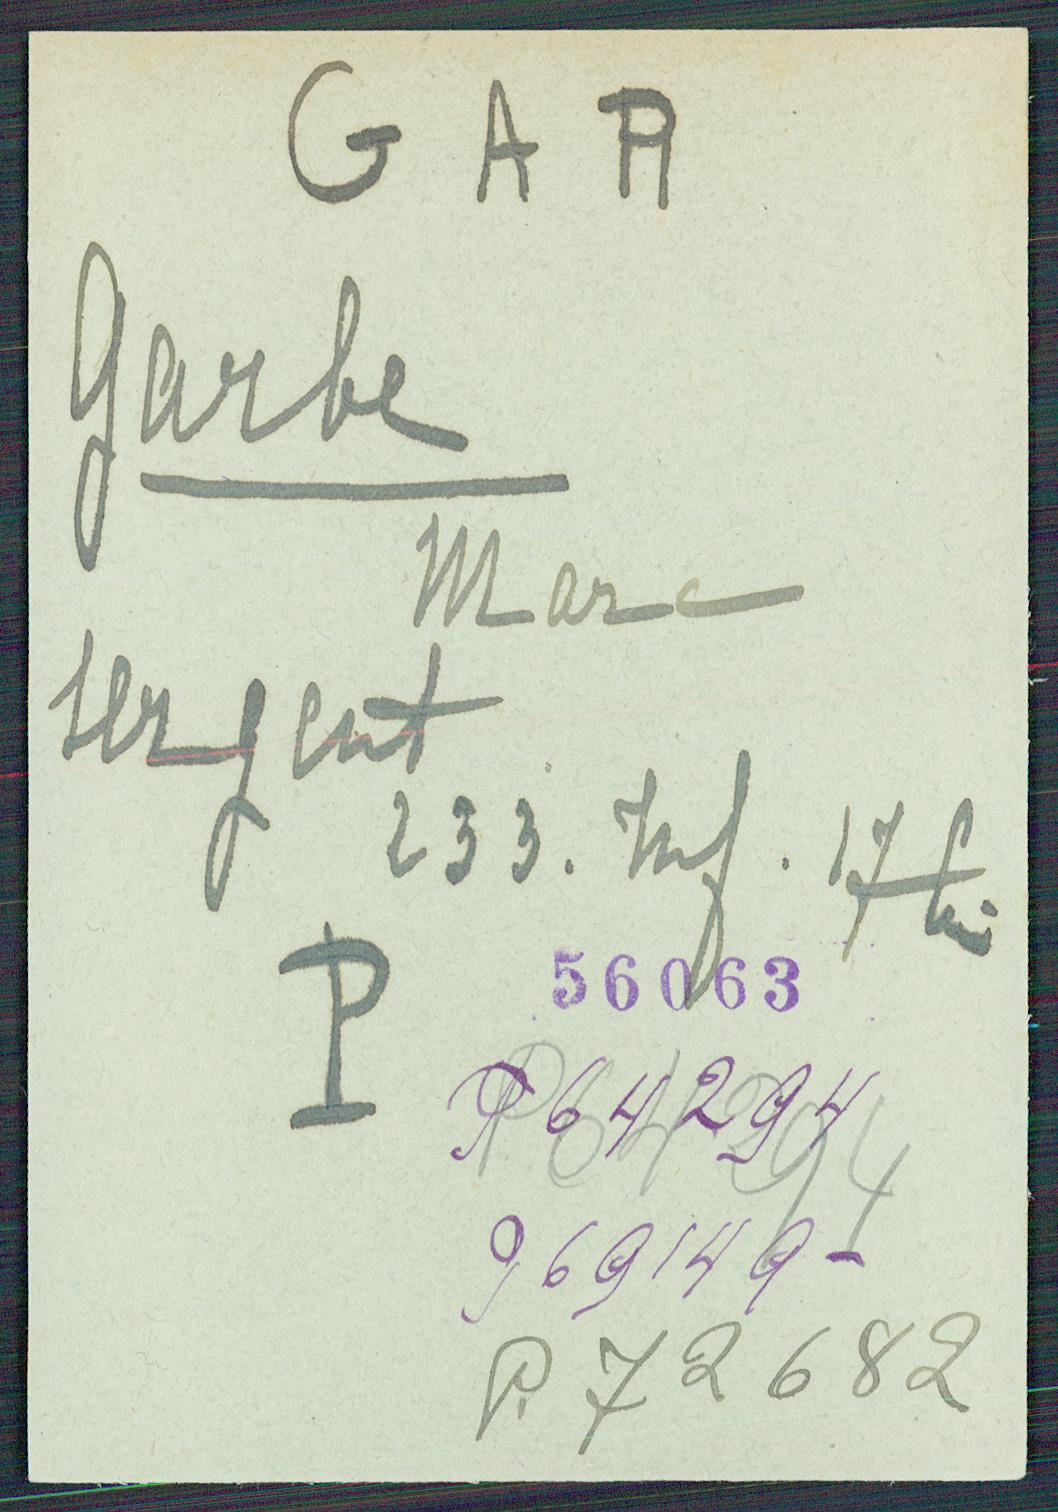 G A R
Garbe
Marc
Sergent
233. Inf. 17
P
56063
P 64294
P 64294
969149-
P. 72682